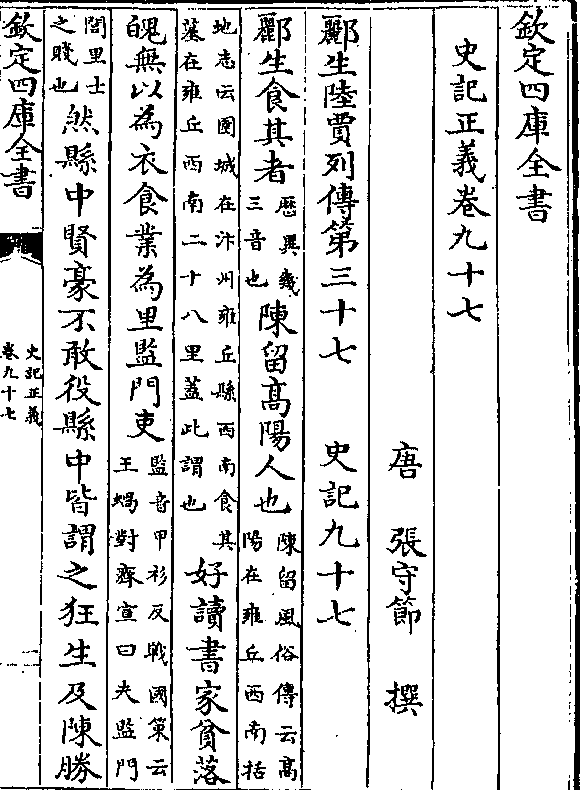 欽定四庫全書
史記正義卷九十七
唐 張守節 撰
酈生陸賈列傳第三十七 史記九十七
酈生食其者歷異幾三音也陳留髙陽人也陳留風俗傳云髙陽在雍丘西南括
地志云圉城在汴州雍丘縣西南食其墓在雍丘西南二十八里蓋此謂也好讀書家貧落
魄無以為衣食業為里監門吏監音甲衫反戰國策云王蝸對齊宣曰夫監門
閭里士之賤也然縣中賢豪不敢役縣中皆謂之狂生及陳勝
欽定四庫全書
史記正義
卷九十七
一